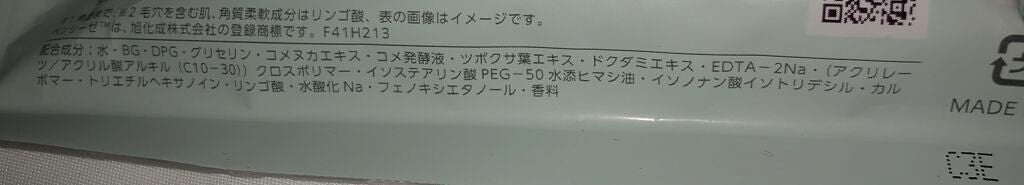 ※2 毛穴を含む肌、角質柔軟成分はリンゴ酸、表の画像はイメージです。
ベンリーゼ™は、旭化成株式会社の登録商標です。F41H213
配合成分：水・BG・DPG・グリセリン・コメヌカエキス・コメ発酵液・ツボクサ葉エキス・ドクダミエキス・EDTA－2Na・（アクリレー
ツ／アクリル酸アルキル（C10－30））クロスポリマー・イソステアリン酸 PEG－50 水添ヒマシ油・イソノナン酸イソトリデシル・カル
ボマー・トリエチルヘキサノイン・リンゴ酸・水酸化 Na・フェノキシエタノール・香料
MADE
C3E